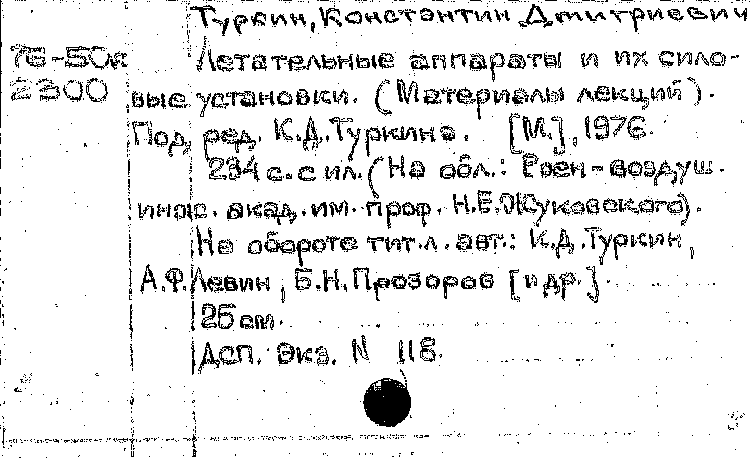 Туркин, Константин Дмитриевич
76-50к Летательные аппараты и их сило-
2300 вые установки. (Материалы лекций).
Под ред. К.Д.Туркина. [М.], 1976.
234 с. с ил. (На обл.: Воен-воздуш.
инж. акад. им. проф. Н.Е.Жуковского).
На обороте тит.л. авт.: К.Д.Туркин,
А.Ф.Левин, Б.Н.Прозоров [и др.]
25 см.
ДСП. Экз. N 118.